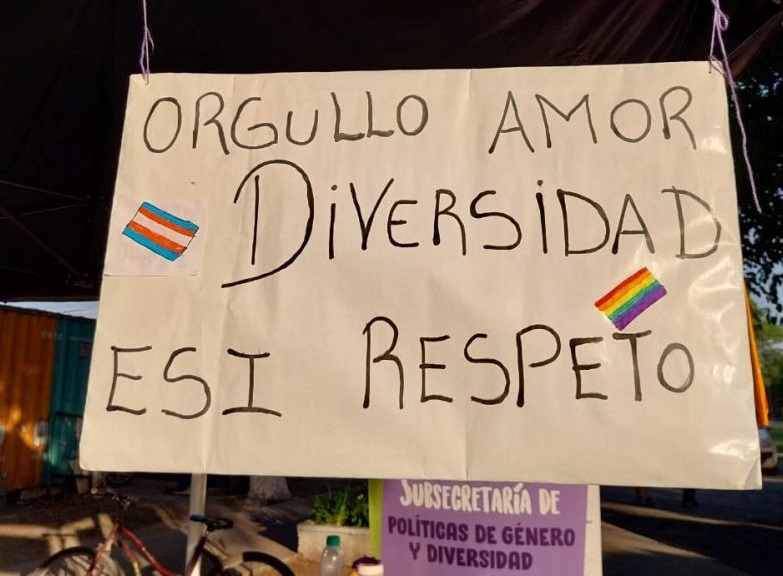 ORGULLO AMOR
DiVERSiDAD
ESI RESPETO
SUBSECRETARÍA DE
POLÍTICAS DE GÉNERO
Y DIVERSIDAD